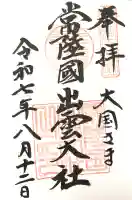 奉拝
大国さま
常陸國
出雲大社
令和七年八月十二日